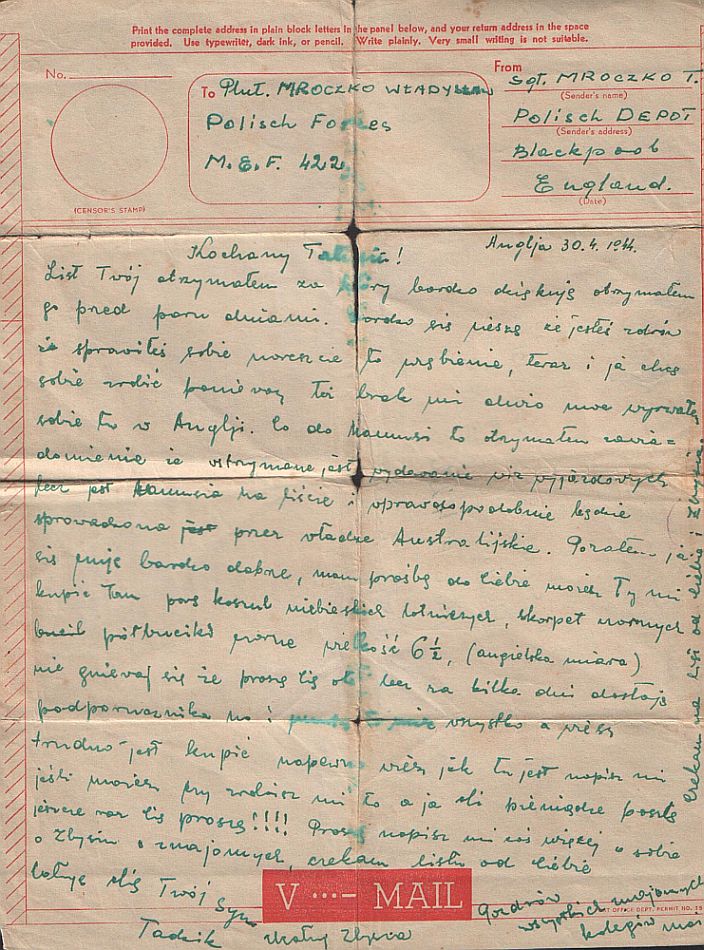 Print the complete address in plain block letters in the panel below, and your return address in the space
provided. Use typewriter, dark ink, or pencil. Write plainly. Very small writing is not suitable.
No.
(CENSOR'S STAMP)
To Plut. MROCZKO WŁADYSŁAW
Polisch Forces
M.E.F. 422
From
Sgt. MROCZKO T.
(Sender's name)
Polisch DEPOT
(Sender's address)
Blackpool
England.
(Date)
Anglja 30.4.1944.
Kochany Tatusiu!
List Twój otrzymałem za który bardzo dziękuję otrzymałem
go przed paru dniami. Bardzo się cieszę że jesteś zdrów
że sprawiłeś sobie nareszcie to uzębienie, teraz i ja chcę
sobie zrobić ponieważ też brak mi
sobie to w Anglji. Co do Mamusi to otrzymałem zawia=
domienie że wstrzymane jest wydawanie viz wyjazdowych
lecz jest Mamusia na liście i uprawdopodobnie będzie
sprowadzona przez władze Australijskie. Pozatem ja
się czuję bardzo dobrze, mam prośbę do Ciebie możesz Ty mi
kupić tam parę koszul niebieskich lotniczych, skarpet czarnych
półbuciki czarne wielkość 6½, (angielska miara)
nie gniewaj się że proszę Cię o to lecz za kilka dni dostaję
podporucznika no i wszystko a wiesz
trudno jest kupić napewno wiesz jak tu jest napisz mi
jeśli możesz czy zrobisz mi to a ja Ci pieniądze poszlę
jeszcze raz Cię proszę!!!! Proszę napisz mi coś więcej o sobie
o Zbysiu i znajomych, czekam listu od Ciebie
całuję Cię Twój Syn
Tadzik
Pozdrów
wszystkich znajomych
kolegów
Czekam na list od Ciebie i Zbysia.
V ···– MAIL